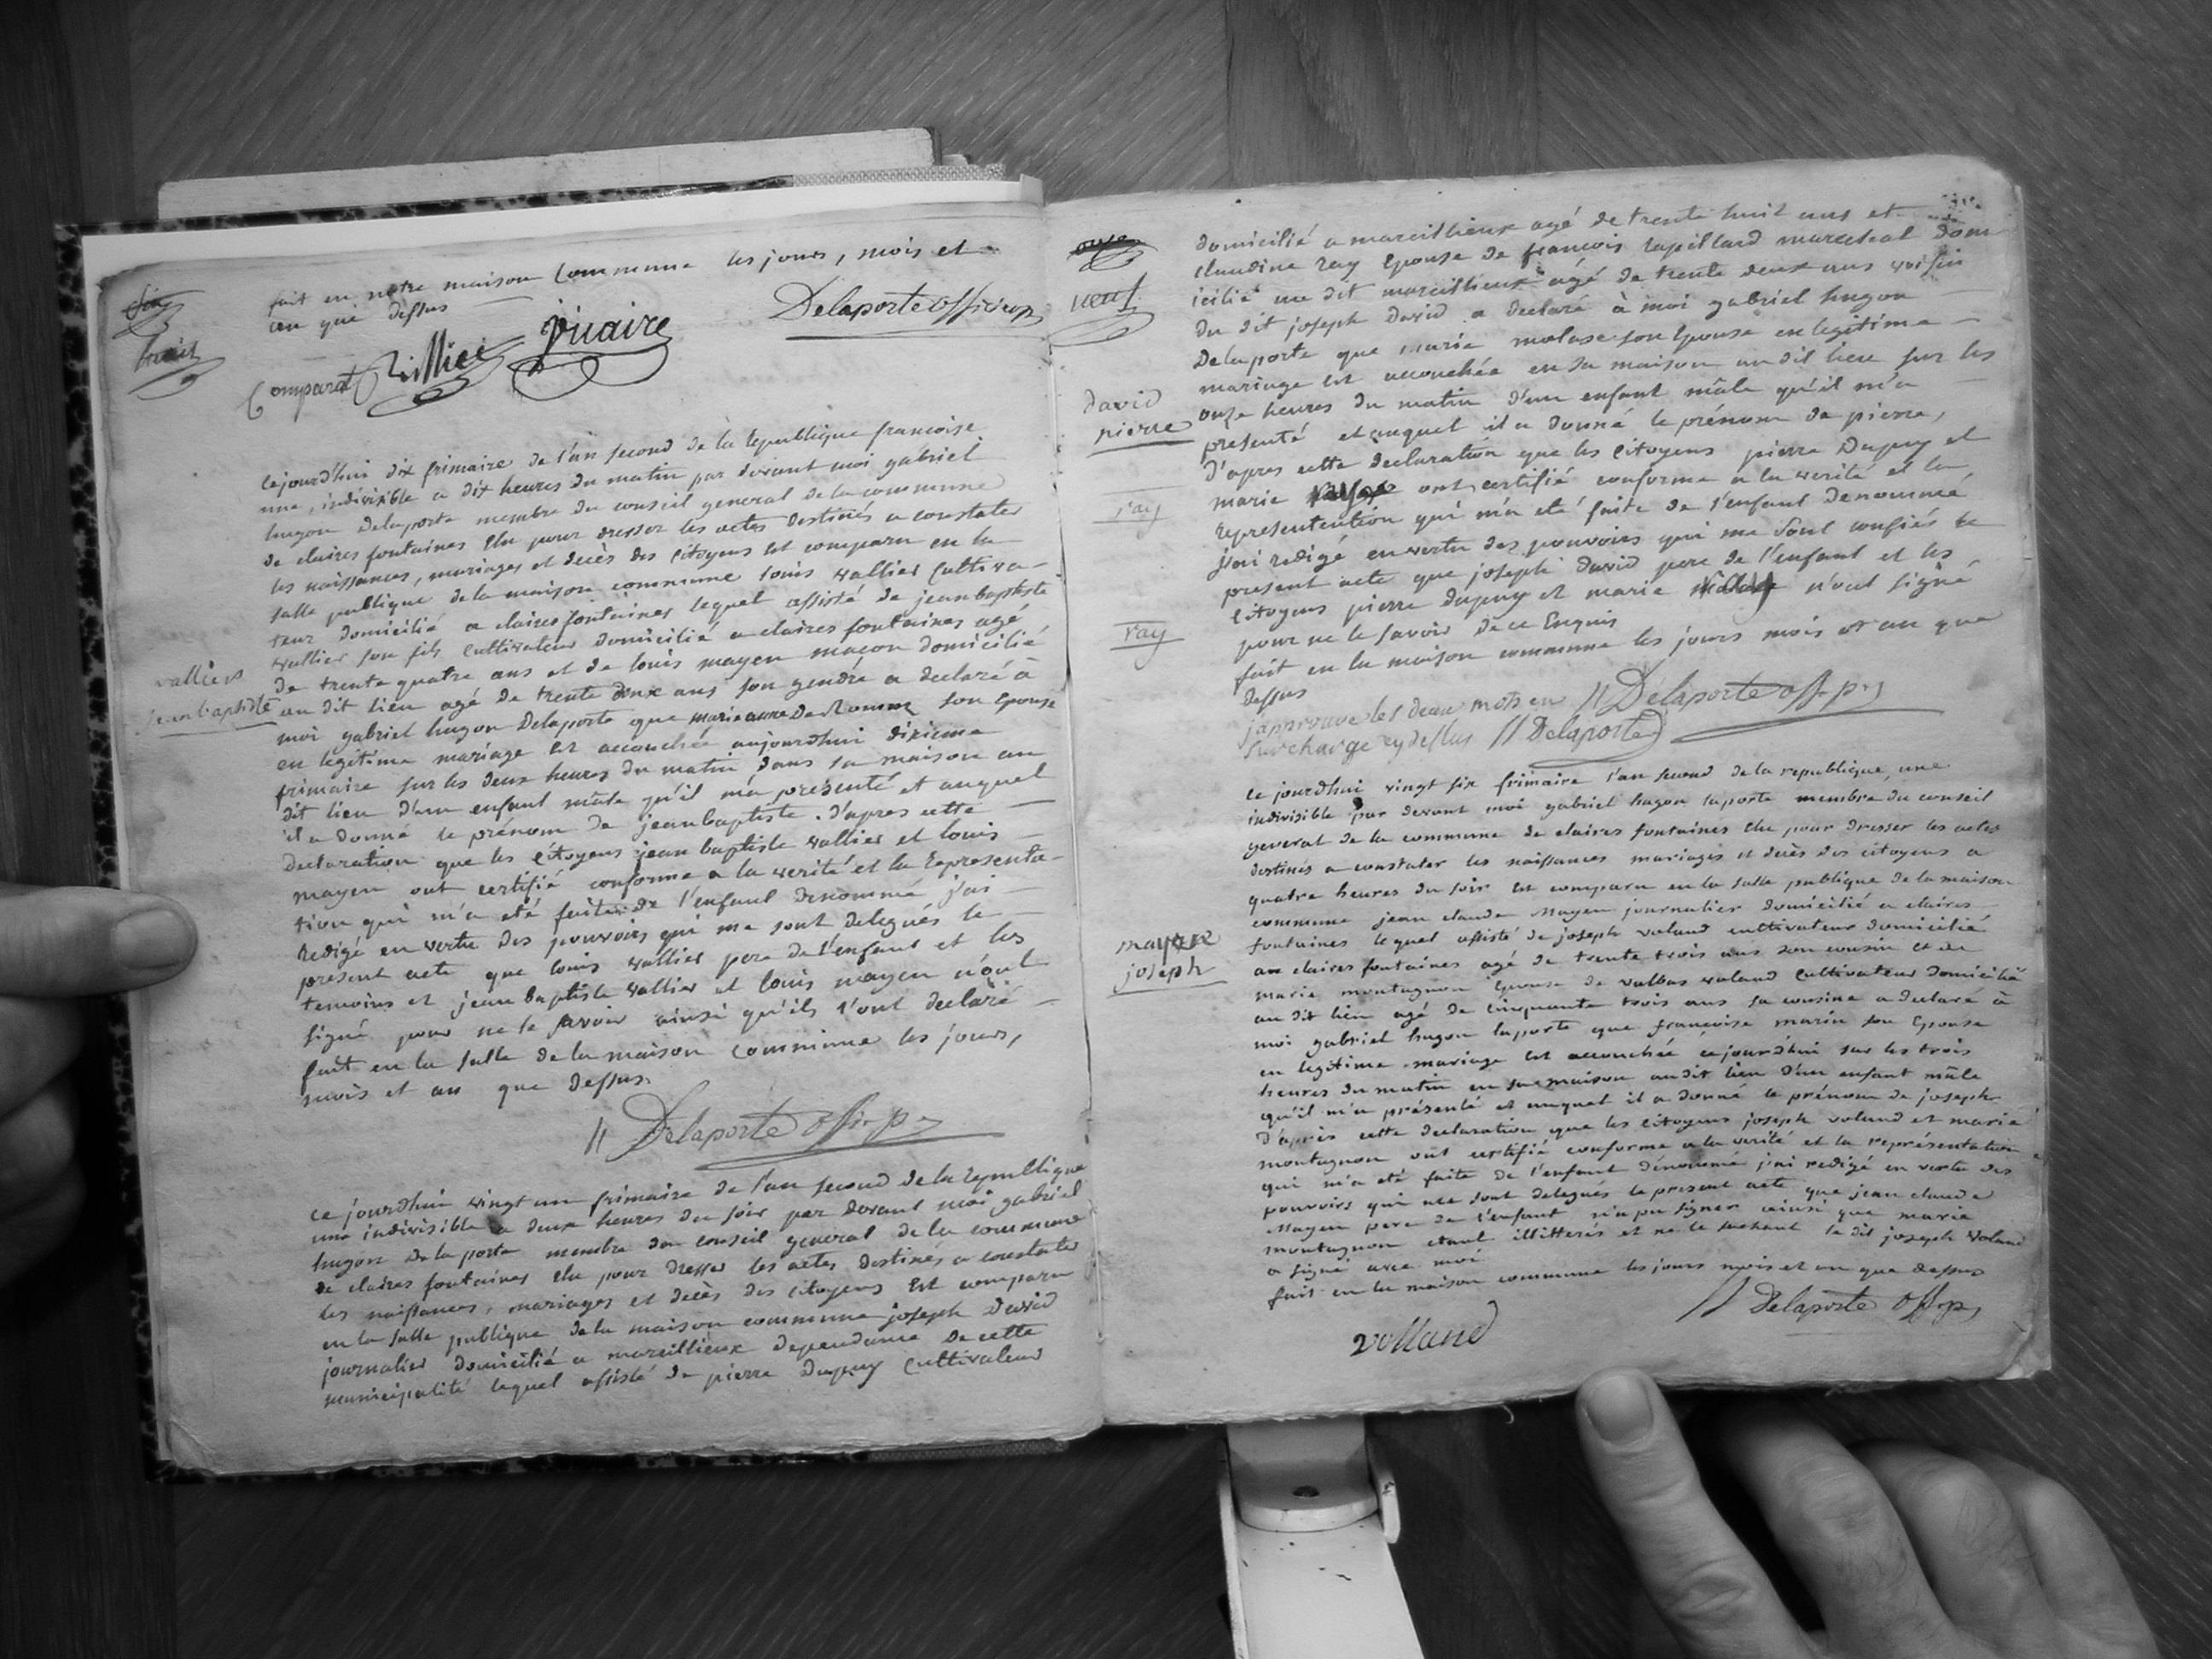 fait en notre maison Commune les jours, mois et
an que dessus
Delaporte officier p
huit
Comparat Villier Vicaire
cejourd'hui dix frimaire de l'an second de la republique francoise
une, indivisible a dix heures du matin par devant moi gabriel
hugon delaporte membre du conseil general de la commune
de claires fontaines elu pour dresser les actes destinés a constater
les naissances, mariages et decès des citoyens est comparu en la
salle publique de la maison commune louis vallier cultiva-
teur domicilié a claires fontaines lequel assisté de jean baptiste
vallier son fils cultivateur domicilié a claires fontaines agé
de trente quatre ans et de louis mayen maçon domicilié
valliers
jean baptiste
au dit lieu agé de trente deux ans son gendre a declaré à
moi gabriel hugon Delaporte que marie anne son epouse
en legitime mariage est accouchée aujourdhui dixieme
frimaire sur les deux heures du matin dans sa maison au
dit lieu d'un enfant mâle qu'il m'a présenté et auquel
il a donné le prénom de jean baptiste. d'apres cette
declaration que les citoyens jean baptiste vallier et louis
mayen ont certifié conforme a la verité et la representa-
tion qui m'a eté faite de l'enfant denommé j'ai
redigé en vertu des pouvoirs qui me sont delegués le
present acte que louis vallier pere de l'enfant et les
temoins et jean baptiste vallier et louis mayen n'ont
signé pour ne le savoir ainsi qu'ils l'ont declaré
fait en la salle de la maison commune les jours,
mois et an que dessus.
// Delaporte off. p.
ce jourdhui vingt un frimaire de l'an second de la republique
une indivisible a deux heures du soir par devant moi gabriel
hugon Delaporte membre du conseil general de la commune
de claires fontaines elu pour dresser les actes destinés a constater
les naissances, mariages et decès des citoyens est comparu
en la salle publique de la maison commune joseph David
journalier domicilié a marcillieux dependance de cette
municipalité lequel assisté de pierre Dupuy cultivateur
neuf
domicilié a marcillieux agé de trente huit ans et
claudine ray epouse de francois rapillard marechal dom
icilié au dit marcillieux agé de trente deux ans voisin
du dit joseph David a declaré à moi gabriel hugon
Delaporte que marie molase son epouse en legitime
mariage est accouchée en sa maison au dit lieu sur les
david
pierre
onze heures du matin d'un enfant mâle qu'il m'a
presenté et auquel il a donné le prénom de pierre,
D'apres cette declaration que les citoyens pierre Dupuy et
ray
marie ont certifié conforme a la verité et la
representention qui m'a eté faite de l'enfant denommé
j'ai redigé en vertu des pouvoirs qui me sont confiés le
present acte que joseph david pere de l'enfant et les
citoyens pierre dupuy et marie n'ont signé
ray
pour ne le savoir de ce enquis
fait en la maison commune les jours mois et an que
dessus
// Delaporte off. p.
j'approuve les deux mots en
surcharge cy dessus // Delaporte
ce jourdhui vingt six frimaire l'an second de la republique une
indivisible par devant moi gabriel hugon laporte membre du conseil
general de la commune de claires fontaines elu pour dresser les actes
destinés a constater les naissances mariages et decès des citoyens a
quatre heures du soir est comparu en la salle publique de la maison
commune jean claude Mayen journalier domicilié a claires
mayen
joseph
fontaines lequel assisté de joseph voland cultivateur domicilié
au claires fontaines agé de trente trois ans son cousin et de
marie montagnon epouse de valbas voland cultivateur domicilié
au dit lieu agé de cinquante trois ans sa cousine a declaré à
moi gabriel hugon laporte que françoise marin son epouse
en legitime mariage est accouchée cejourdhui sur les trois
heures du matin en sa maison audit lieu d'un enfant mâle
qu'il m'a présenté et auquel il a donné le prénom de joseph
D'après cette declaration que les citoyens joseph voland et marie
montagnon ont certifié conforme a la verité et la représentation
qui m'a eté faite de l'enfant dénommé j'ai redigé en vertu des
pouvoirs qui me sont delegués le present acte que jean claude
Mayen pere de l'enfant n'a pu signer ainsi que marie
montagnon etant illitterés et ne le sachant le dit joseph Voland
a signé avec moi
fait en la maison commune les jours mois et an que dessus
// Delaporte off. p.
volland